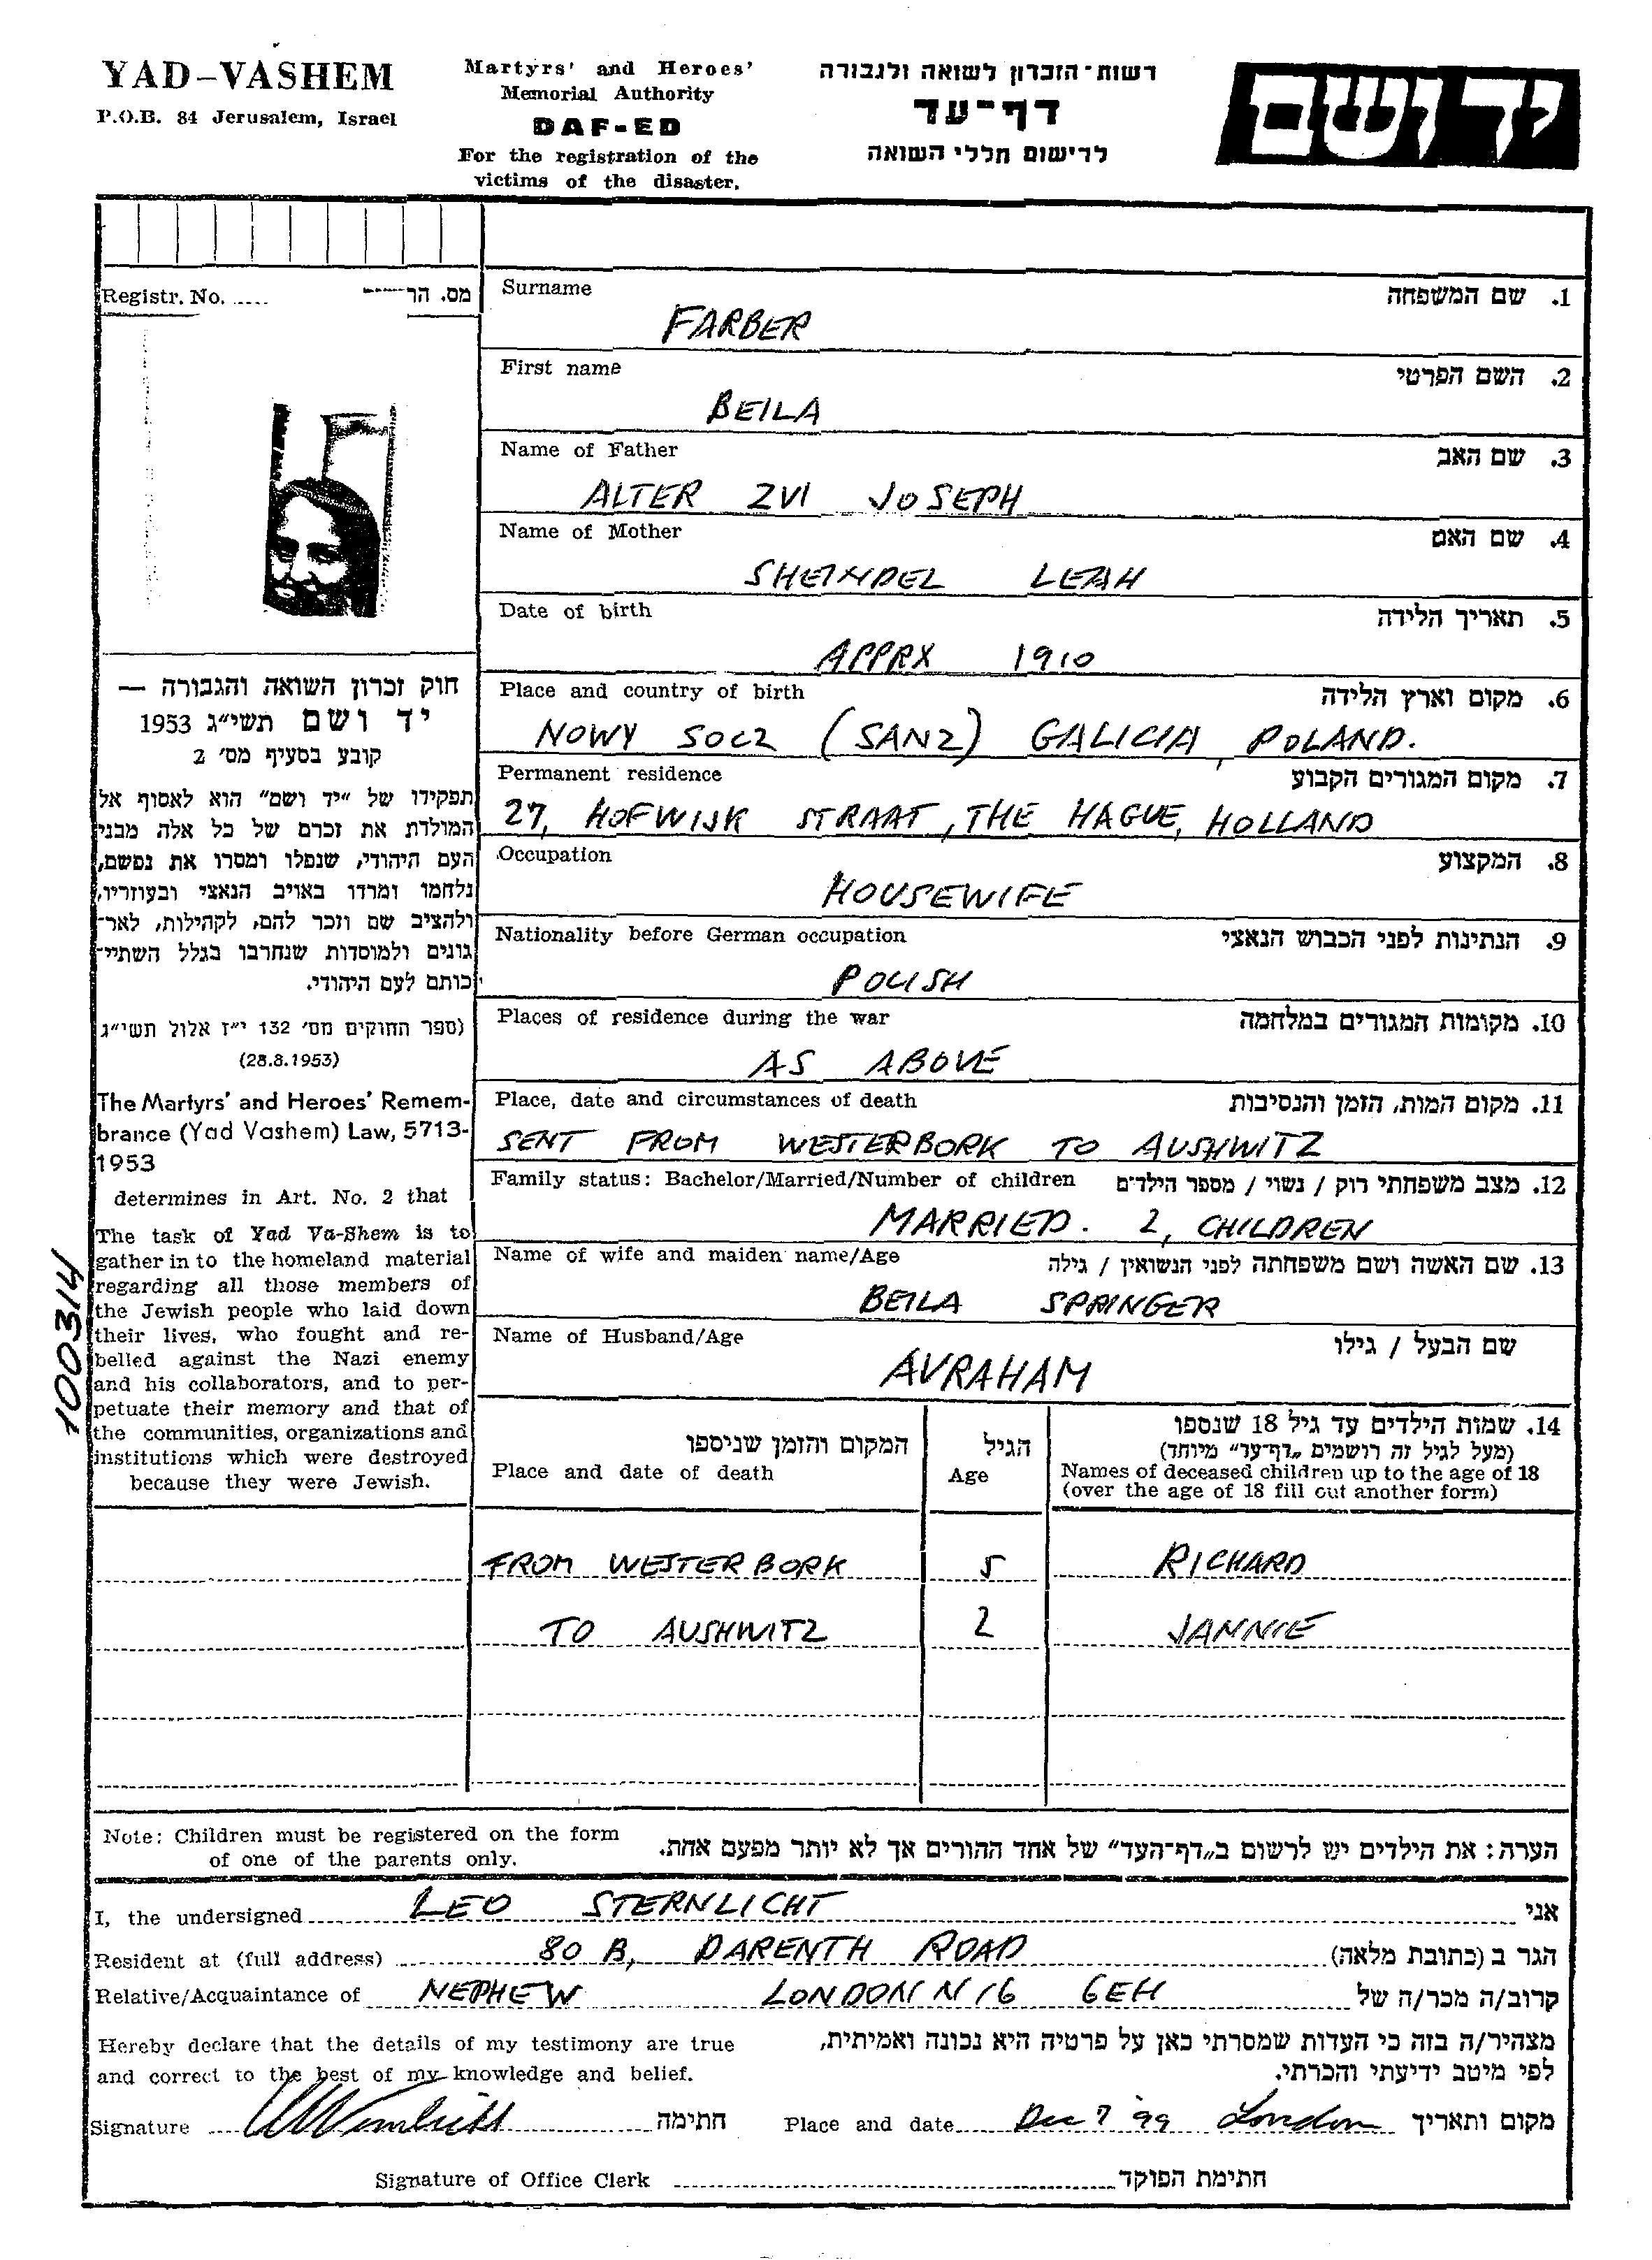 YAD-VASHEM
P.O.B. 84 Jerusalem, Israel
Martyrs' and Heroes'
Memorial Authority
DAF-ED
For the registration of the
victims of the disaster.
רשות-הזכרון לשואה ולגבורה
דף-עד
לרישום חללי השואה
יד ושם
Registr. No. ..... מס. הר
Surname 1. שם המשפחה
FARBER
First name 2. השם הפרטי
BEILA
Name of Father 3. שם האב
ALTER ZVI JOSEPH
Name of Mother 4. שם האם
SHEINDEL LEAH
Date of birth 5. תאריך הלידה
APPRX 1910
Place and country of birth 6. מקום וארץ הלידה
NOWY SOCZ (SANZ) GALICIA, POLAND.
Permanent residence 7. מקום המגורים הקבוע
27, HOFWIJK STRAAT, THE HAGUE, HOLLAND
Occupation 8. המקצוע
HOUSEWIFE
Nationality before German occupation 9. הנתינות לפני הכבוש הנאצי
POLISH
Places of residence during the war 10. מקומות המגורים במלחמה
AS ABOVE
Place, date and circumstances of death 11. מקום המות, הזמן והנסיבות
SENT FROM WESTERBORK TO AUSHWITZ
Family status: Bachelor/Married/Number of children 12. מצב משפחתי רוק / נשוי / מספר הילדים
MARRIED. 2, CHILDREN
Name of wife and maiden name/Age 13. שם האשה ושם משפחתה לפני הנשואין / גילה
BEILA SPRINGER
Name of Husband/Age שם הבעל / גילו
AVRAHAM
חוק זכרון השואה והגבורה —
יד ושם תשי״ג 1953
קובע בסעיף מס׳ 2
תפקידו של ״יד ושם״ הוא לאסוף אל
המולדת את זכרם של כל אלה מבני
העם היהודי, שנפלו ומסרו את נפשם,
נלחמו ומרדו באויב הנאצי ובעוזריו,
ולהציב שם וזכר להם, לקהילות, לאר-
גונים ולמוסדות שנחרבו בגלל השתיי-
כותם לעם היהודי.
(ספר החוקים מס׳ 132 י״ז אלול תשי״ג
(28.8.1953)
The Martyrs' and Heroes' Remem-
brance (Yad Vashem) Law, 5713-
1953
determines in Art. No. 2 that
The task of Yad Va-Shem is to
gather in to the homeland material
regarding all those members of
the Jewish people who laid down
their lives, who fought and re-
belled against the Nazi enemy
and his collaborators, and to per-
petuate their memory and that of
the communities, organizations and
institutions which were destroyed
because they were Jewish.
100314
המקום והזמן שניספו
Place and date of death
הגיל
Age
14. שמות הילדים עד גיל 18 שנספו
(מעל לגיל זה רושמים „דף-עד״ מיוחד)
Names of deceased children up to the age of 18
(over the age of 18 fill out another form)
FROM WESTERBORK 5 RICHARD
TO AUSHWITZ 2 JANNIE
Note: Children must be registered on the form
of one of the parents only.
הערה: את הילדים יש לרשום ב„דף-העד״ של אחד ההורים אך לא יותר מפעם אחת.
I, the undersigned LEO STERNLICHT אני
Resident at (full address) 80 B, DARENTH ROAD הגר ב (כתובת מלאה)
Relative/Acquaintance of NEPHEW LONDON N16 6EH קרוב/ה מכר/ה של
Hereby declare that the details of my testimony are true
and correct to the best of my knowledge and belief.
מצהיר/ה בזה כי העדות שמסרתי כאן על פרטיה היא נכונה ואמיתית,
לפי מיטב ידיעתי והכרתי.
Signature חתימה Place and date Dec 7 '99 London מקום ותאריך
Signature of Office Clerk חתימת הפוקד